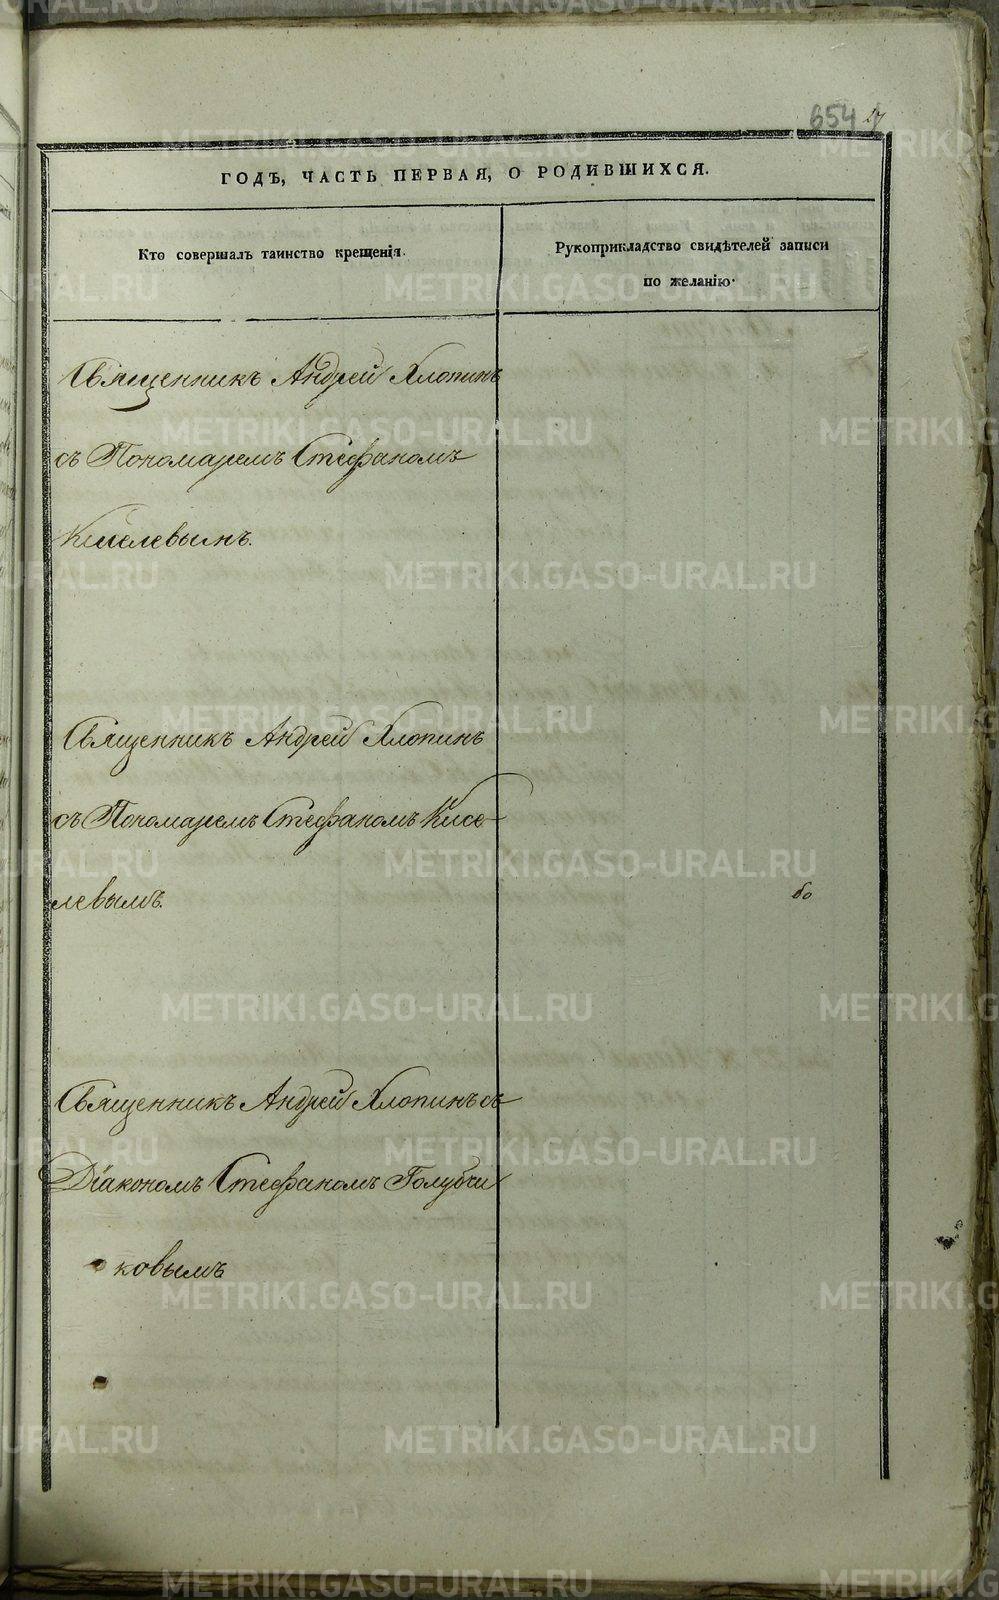 654 27
ГОДЪ, ЧАСТЬ ПЕРВАЯ, О РОДИВШИХСЯ.
Кто совершалъ таинство крещенія.
Рукоприкладство свидѣтелей записи
по желанію.
Священникъ Андрей Хлопинъ
съ Пономаремъ Стефаномъ
Киселевымъ.
Священникъ Андрей Хлопинъ
съ Пономаремъ Стефаномъ Кисе-
левымъ.
Священникъ Андрей Хлопинъ съ
Діакономъ Стефаномъ Голубчи
ковымъ
METRIKI.GASO-URAL.RU